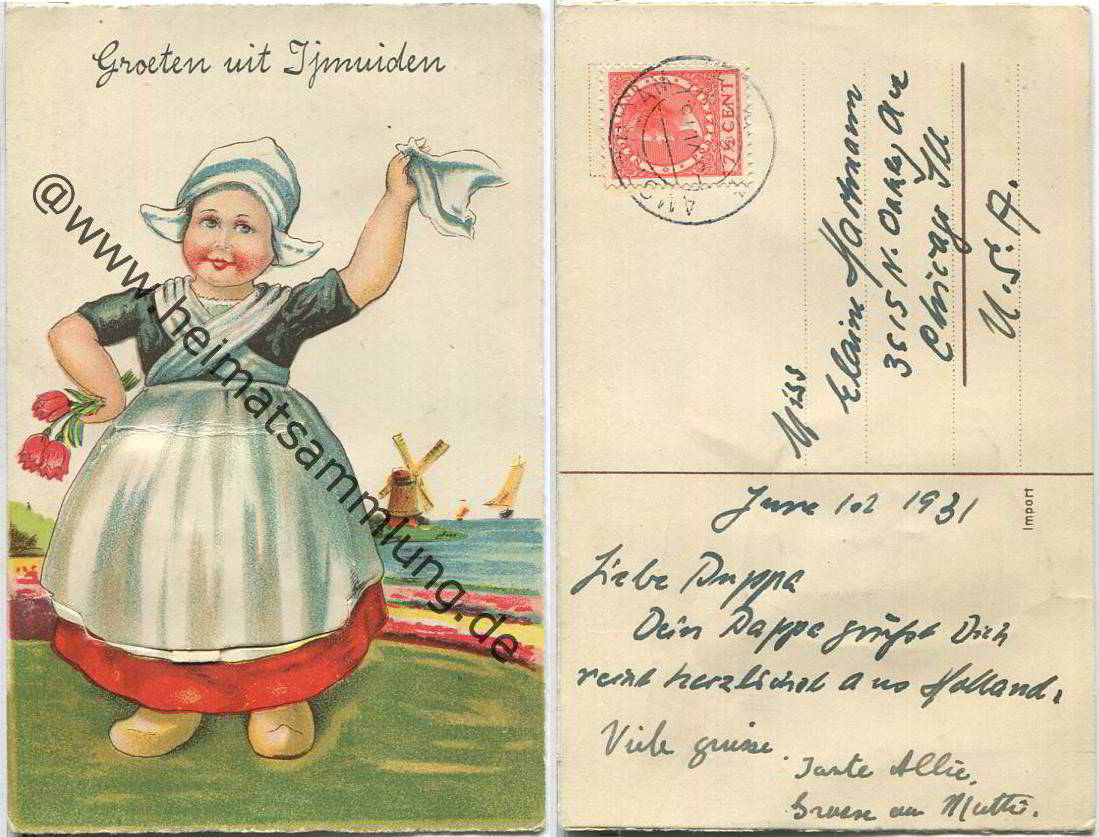 Groeten uit Ijmuiden
@www.heimatsammlung.de
7½ CENT
Miss
Elaine Hartmann
3615 N. Oakley Ave
Chicago Ill
U.S.A.
Import
June 1st 1931
Liebe Puppa
Dein Pappa grüßt Dich
recht herzlichst aus Holland.
Viele grüsse
Tante Allie.
Gruss an Mutti.